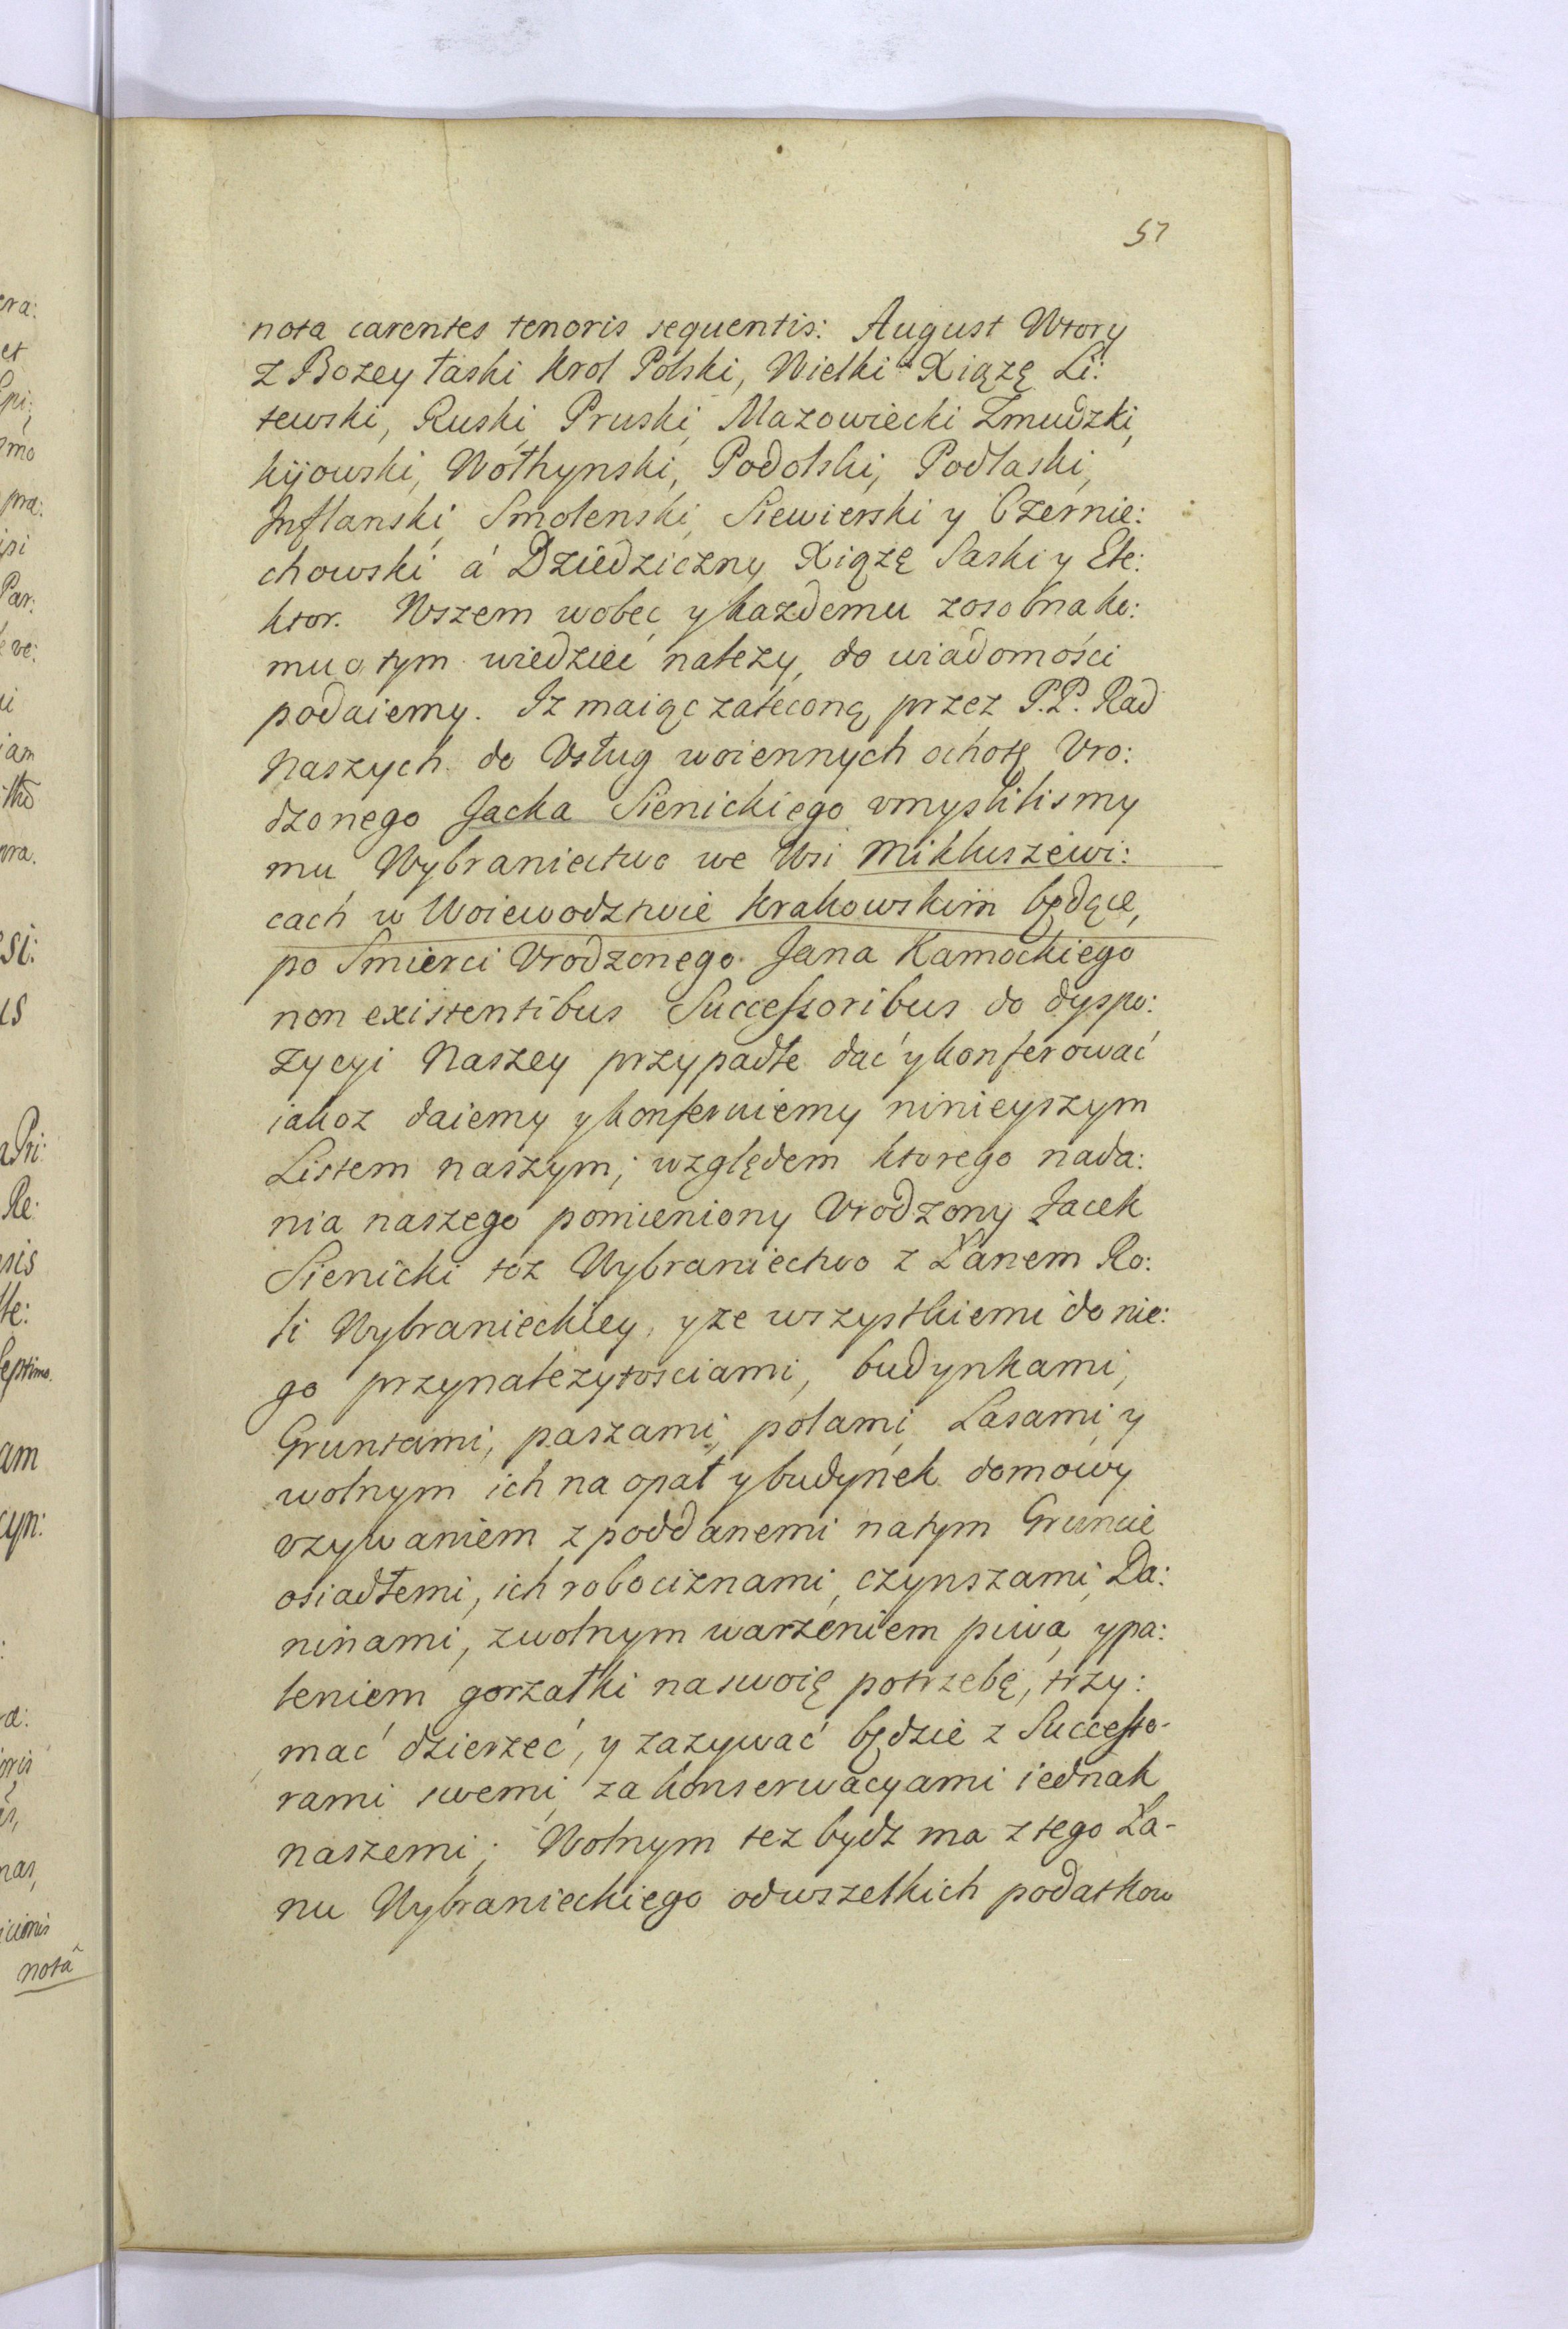 57
nota carentes tenoris sequentis: August Wtory
z Bozey łaski krol Polski, Wielki Xiąże Li:
tewski, Ruski, Pruski, Mazowiecki Zmudzki,
kijowski, Wołhynski, Podolski, Podlaski,
Inflanski, Smolenski, Siewierski y Czernie:
chowski á Dziedziczny Xiążę Saski y Ele:
ktor. Wszem wobec y kazdemu zosobna ko:
mu o tym wiedzieć nalezy, do wiadomości
podaiemy. Iz maiąc zaleconą przez P.P. Rad
Naszych do Usług woiennych ochotę Vro:
dzonego Jacka Sienickiego vmyslilismy
mu Wybraniectwo we Wsi Mikluszewi:
cach w Woiewodztwie krakowskim będące,
po Smierci Vrodzonego Jana Kamockiego
non existentibus Successoribus do dyspo:
zycyi Naszey przypadłe dać y konferować
iakoz daiemy y konferuiemy ninieyszym
Listem naszym; względem ktorego nada:
nia naszego pomieniony Vrodzony Jacek
Sienicki toz Wybraniectwo z Łanem Ro:
li Wybranieckiey, y ze wszystkiemi do nie:
go przynalezytosciami, budynkami,
Gruntami, paszami, polami, Lasami, y
wolnym ich na opał y budynek domowy
vzywaniem z poddanemi natym Gruncie
osiadłemi, ich robociznami, czynszami, Da:
ninami, zwolnym warzeniem piwa, ypa:
leniem gorzałki na swoię potrzebę, trzy:
mać dzierzeć, y zazywać będzie z Successo-
rami swemi, za konserwacyami iednak
naszemi; Wolnym tez bydz ma z tego Ła-
nu Wybranieckiego odwszelkich podatkow
nota